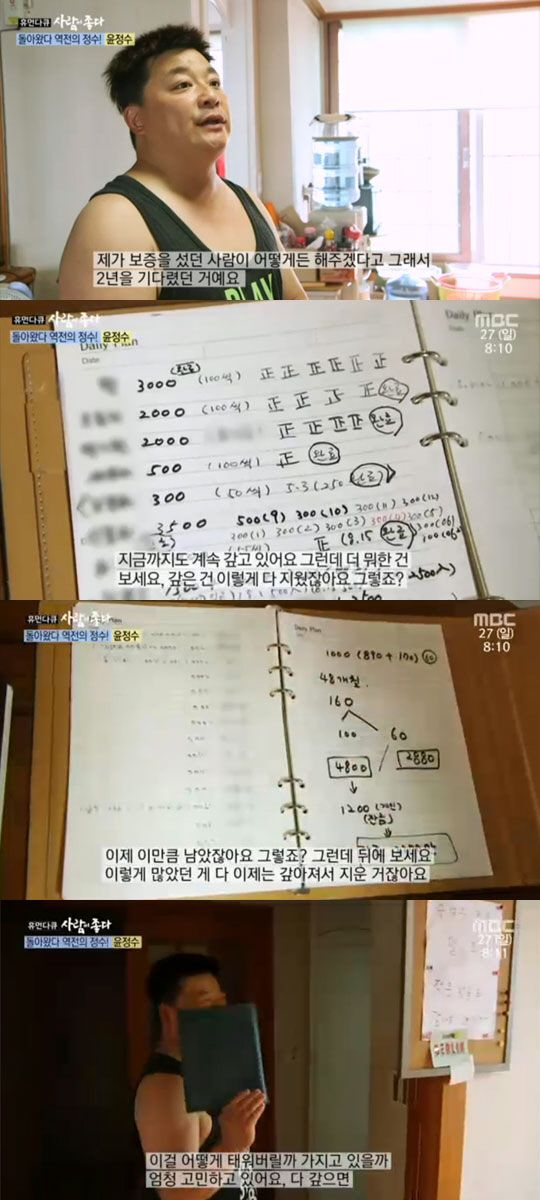 휴먼다큐 사람이 좋다
돌아왔다 역전의 정수! 윤정수
제가 보증을 섰던 사람이 어떻게든 해주겠다고 그래서
2년을 기다렸던 거예요
휴먼다큐 사람이 좋다
돌아왔다 역전의 정수! 윤정수
MBC
27(일)
8:10
Daily Plan
Date
Daily Plan
3000 (100씩) 완료 正 正 正 正 正 正
2000 (100씩) 正 正 正 완료
2000 正 正 正 正 완료
500 (100씩) 正 완료
300 (50씩) 5.3(250 완료
3500 500(9) 300(10) 300(11) 300(12)
300(1) 300(2) 300(3) 300(4) 300(5)
正 8.15 완료 300(06)
지금까지도 계속 갚고 있어요 그런데 더 뭐한 건
보세요, 갚은 건 이렇게 다 지웠잖아요 그렇죠?
휴먼다큐 사람이 좋다
돌아왔다 역전의 정수! 윤정수
MBC
27(일)
8:10
Daily Plan
1000 (890 + 110)
48개월.
160
100 60
4800 2880
1200 (개인)
(잔금)
이제 이만큼 남았잖아요 그렇죠? 그런데 뒤에 보세요
이렇게 많았던 게 다 이제는 갚아져서 지운 거잖아요
휴먼다큐 사람이 좋다
돌아왔다 역전의 정수! 윤정수
MBC
27(일)
8:11
BERLIN
이걸 어떻게 태워버릴까 가지고 있을까
엄청 고민하고 있어요, 다 갚으면